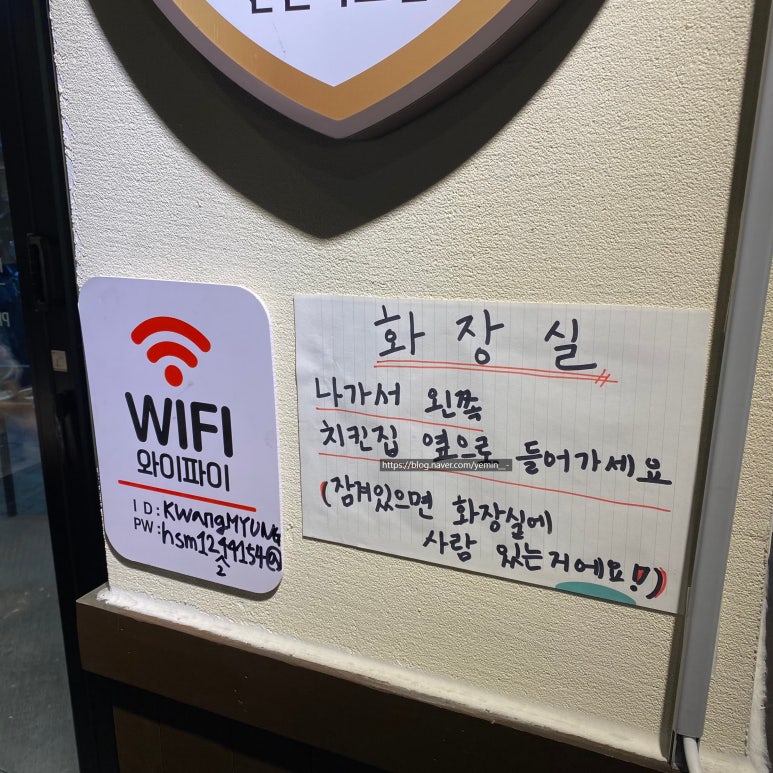 WIFI
와이파이
ID: KwangMYUNG
화장실
나가서 왼쪽
치킨집 옆으로 들어가세요
https://blog.naver.com/yemin__-
(잠겨있으면 화장실에
사람 있는거에요!)